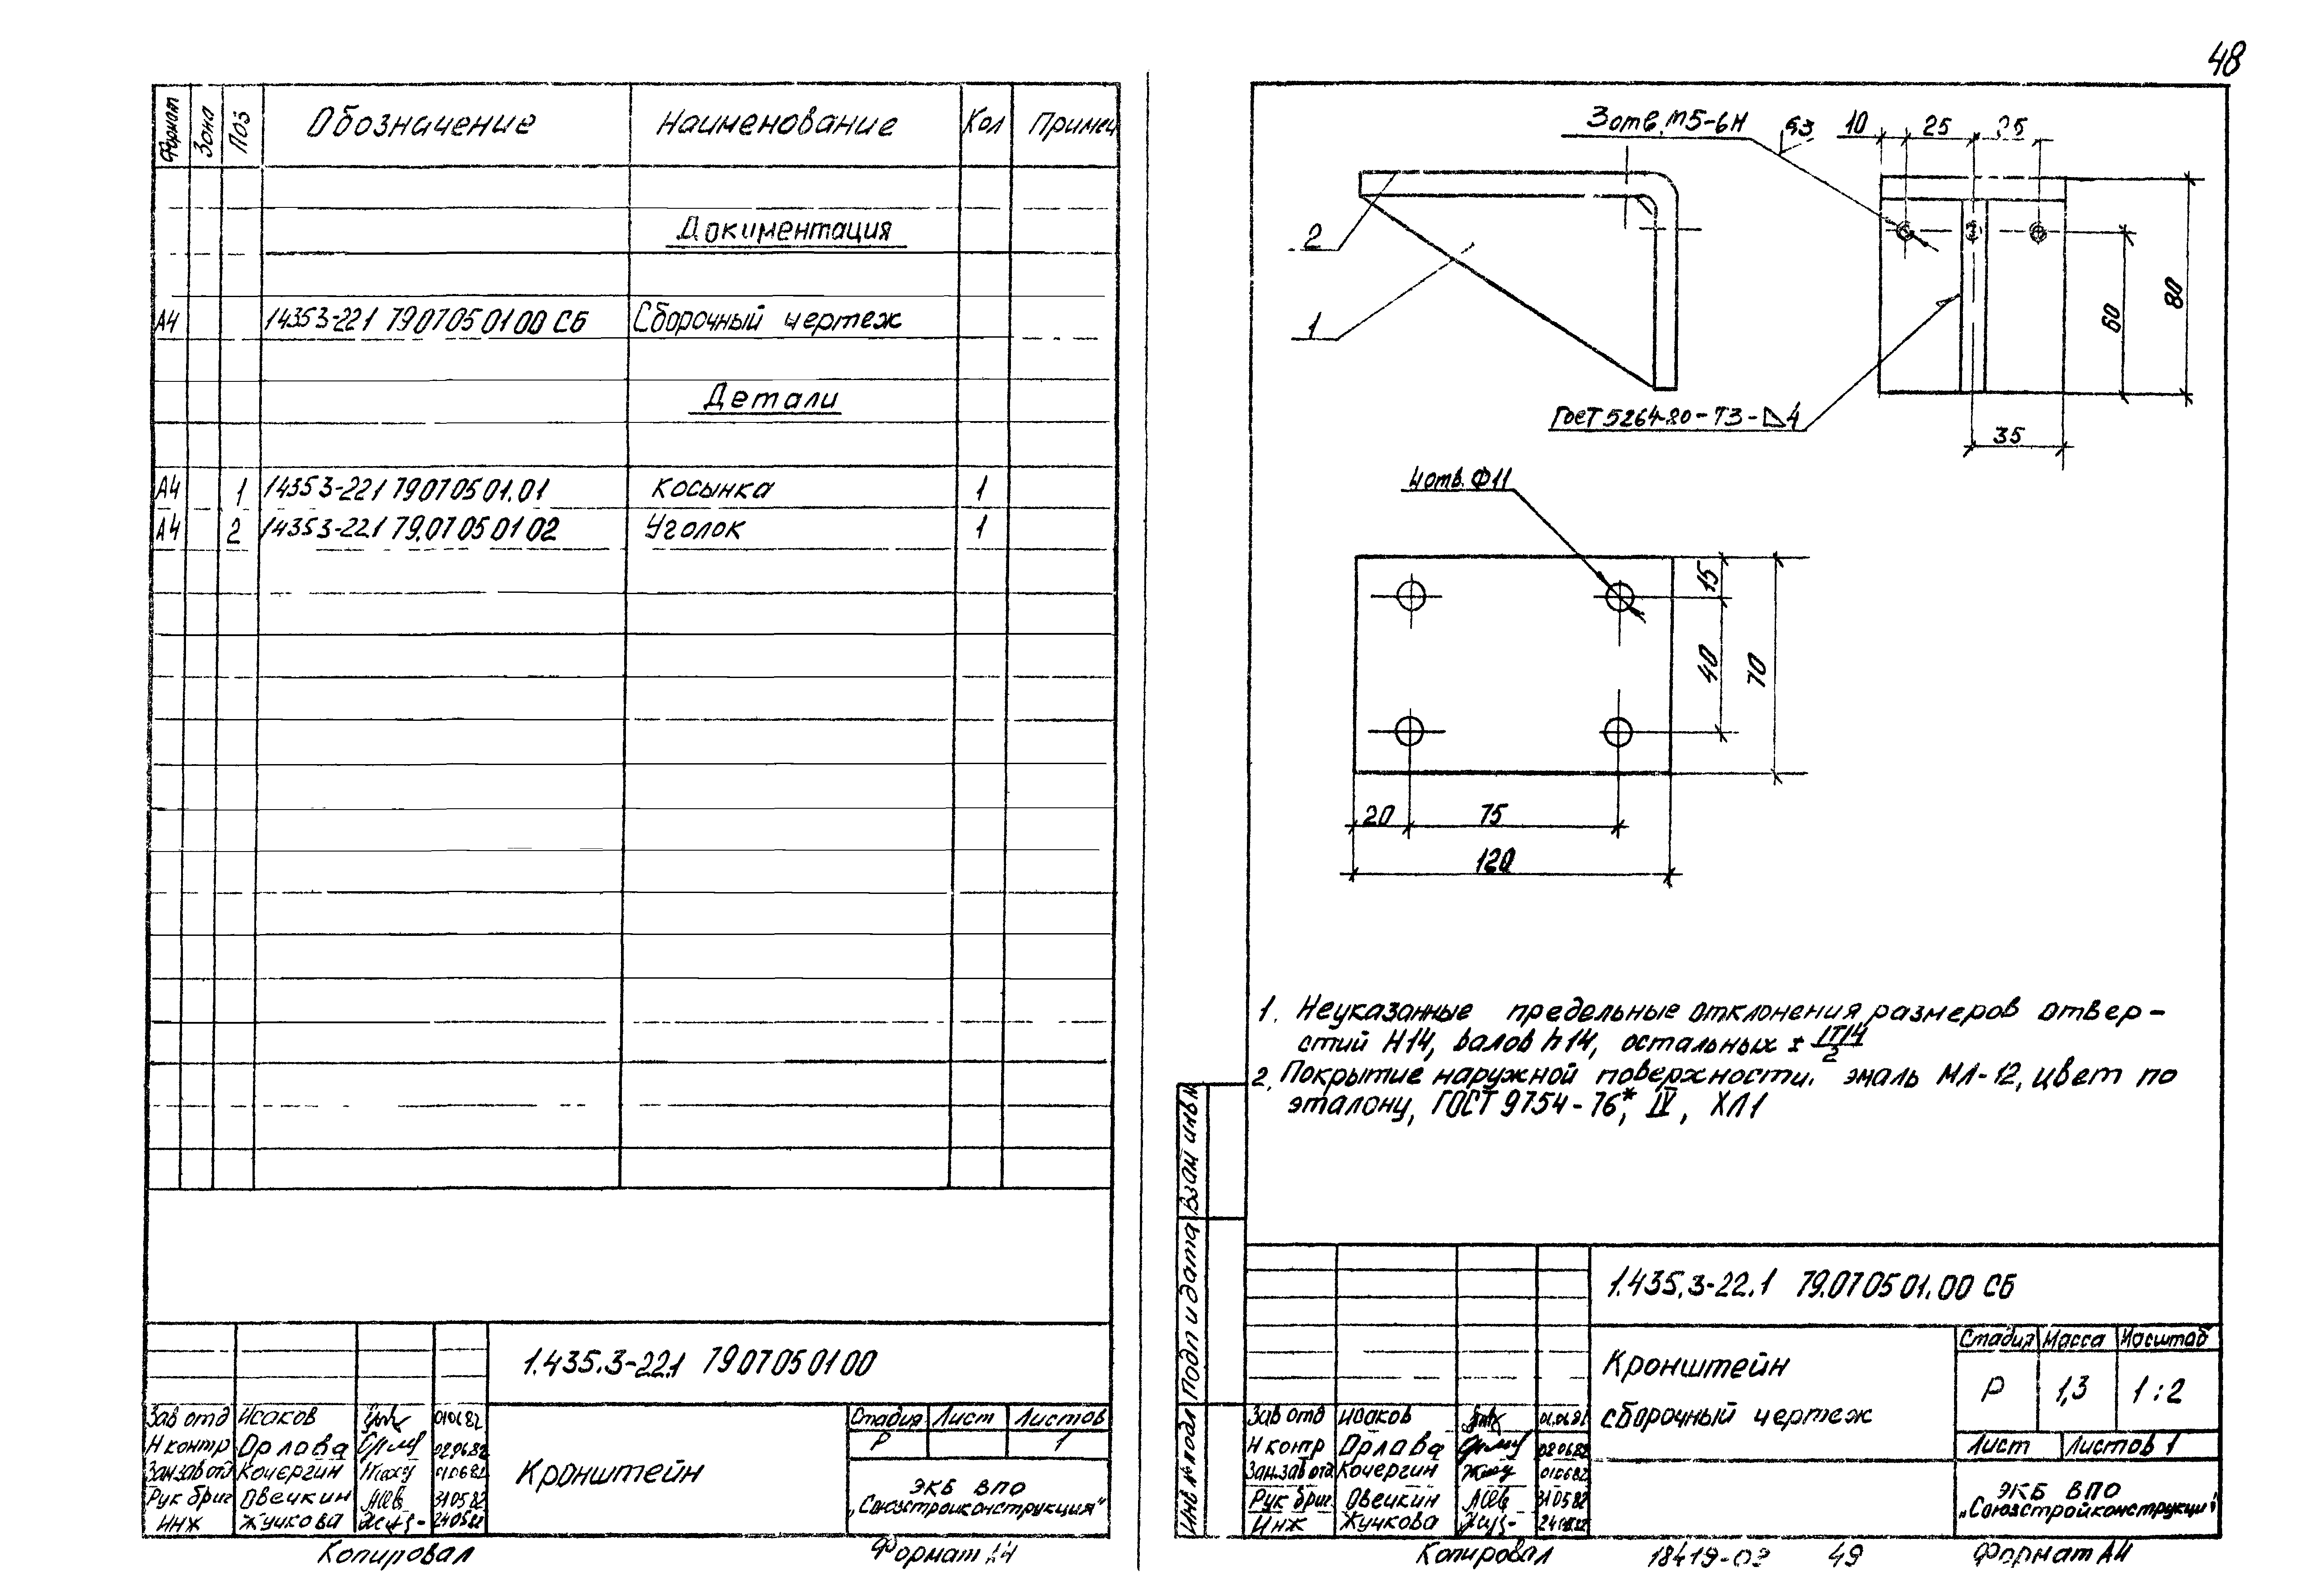 48
Формат Зона Поз Обозначение Наименование Кол Примеч
Документация
А4 14353-221 7907050100 СБ Сборочный чертеж
Детали
А4 1 14353-221 79070501.01 Косынка 1
А4 2 14353-22.1 79.07050102 Уголок 1
1.435.3-22.1 7907050100
Зав отд Исаков 010682
Н контр Орлова 020682
Зам.зав отд Кочергин 010682
Рук бриг Овечкин 310582
Инж Жучкова 240582
Кронштейн
Стадия Лист Листов
Р 1
ЭКБ ВПО
„Союзстройконструкция"
Копировал Формат А4
3 отв. М5-6Н 6,3 10 25 25
2
1
60
80
ГОСТ 5264-80-Т3-△4
35
4 отв. Ф11
15
40
70
20 75
120
1. Неуказанные предельные отклонения размеров отвер-
стий Н14, валов h14, остальных ± IT14/2
2. Покрытие наружной поверхности. эмаль МЛ-12, цвет по
эталону, ГОСТ 9754-76*, IV, ХЛ1
Взам инв N
Подп и дата
Инв N подл
1.435.3-22.1 79.070501.00 СБ
Кронштейн
сборочный чертеж
Стадия Масса Масштаб
Р 1,3 1:2
Лист Листов 1
Зав отд Исаков 01.0682
Н контр Орлова 020682
Зам.зав отд Кочергин 010682
Рук бриг. Овечкин 310582
Инж Жучкова 240582
ЭКБ ВПО
„Союзстройконструкция"
Копировал 18419-03 49 Формат А4